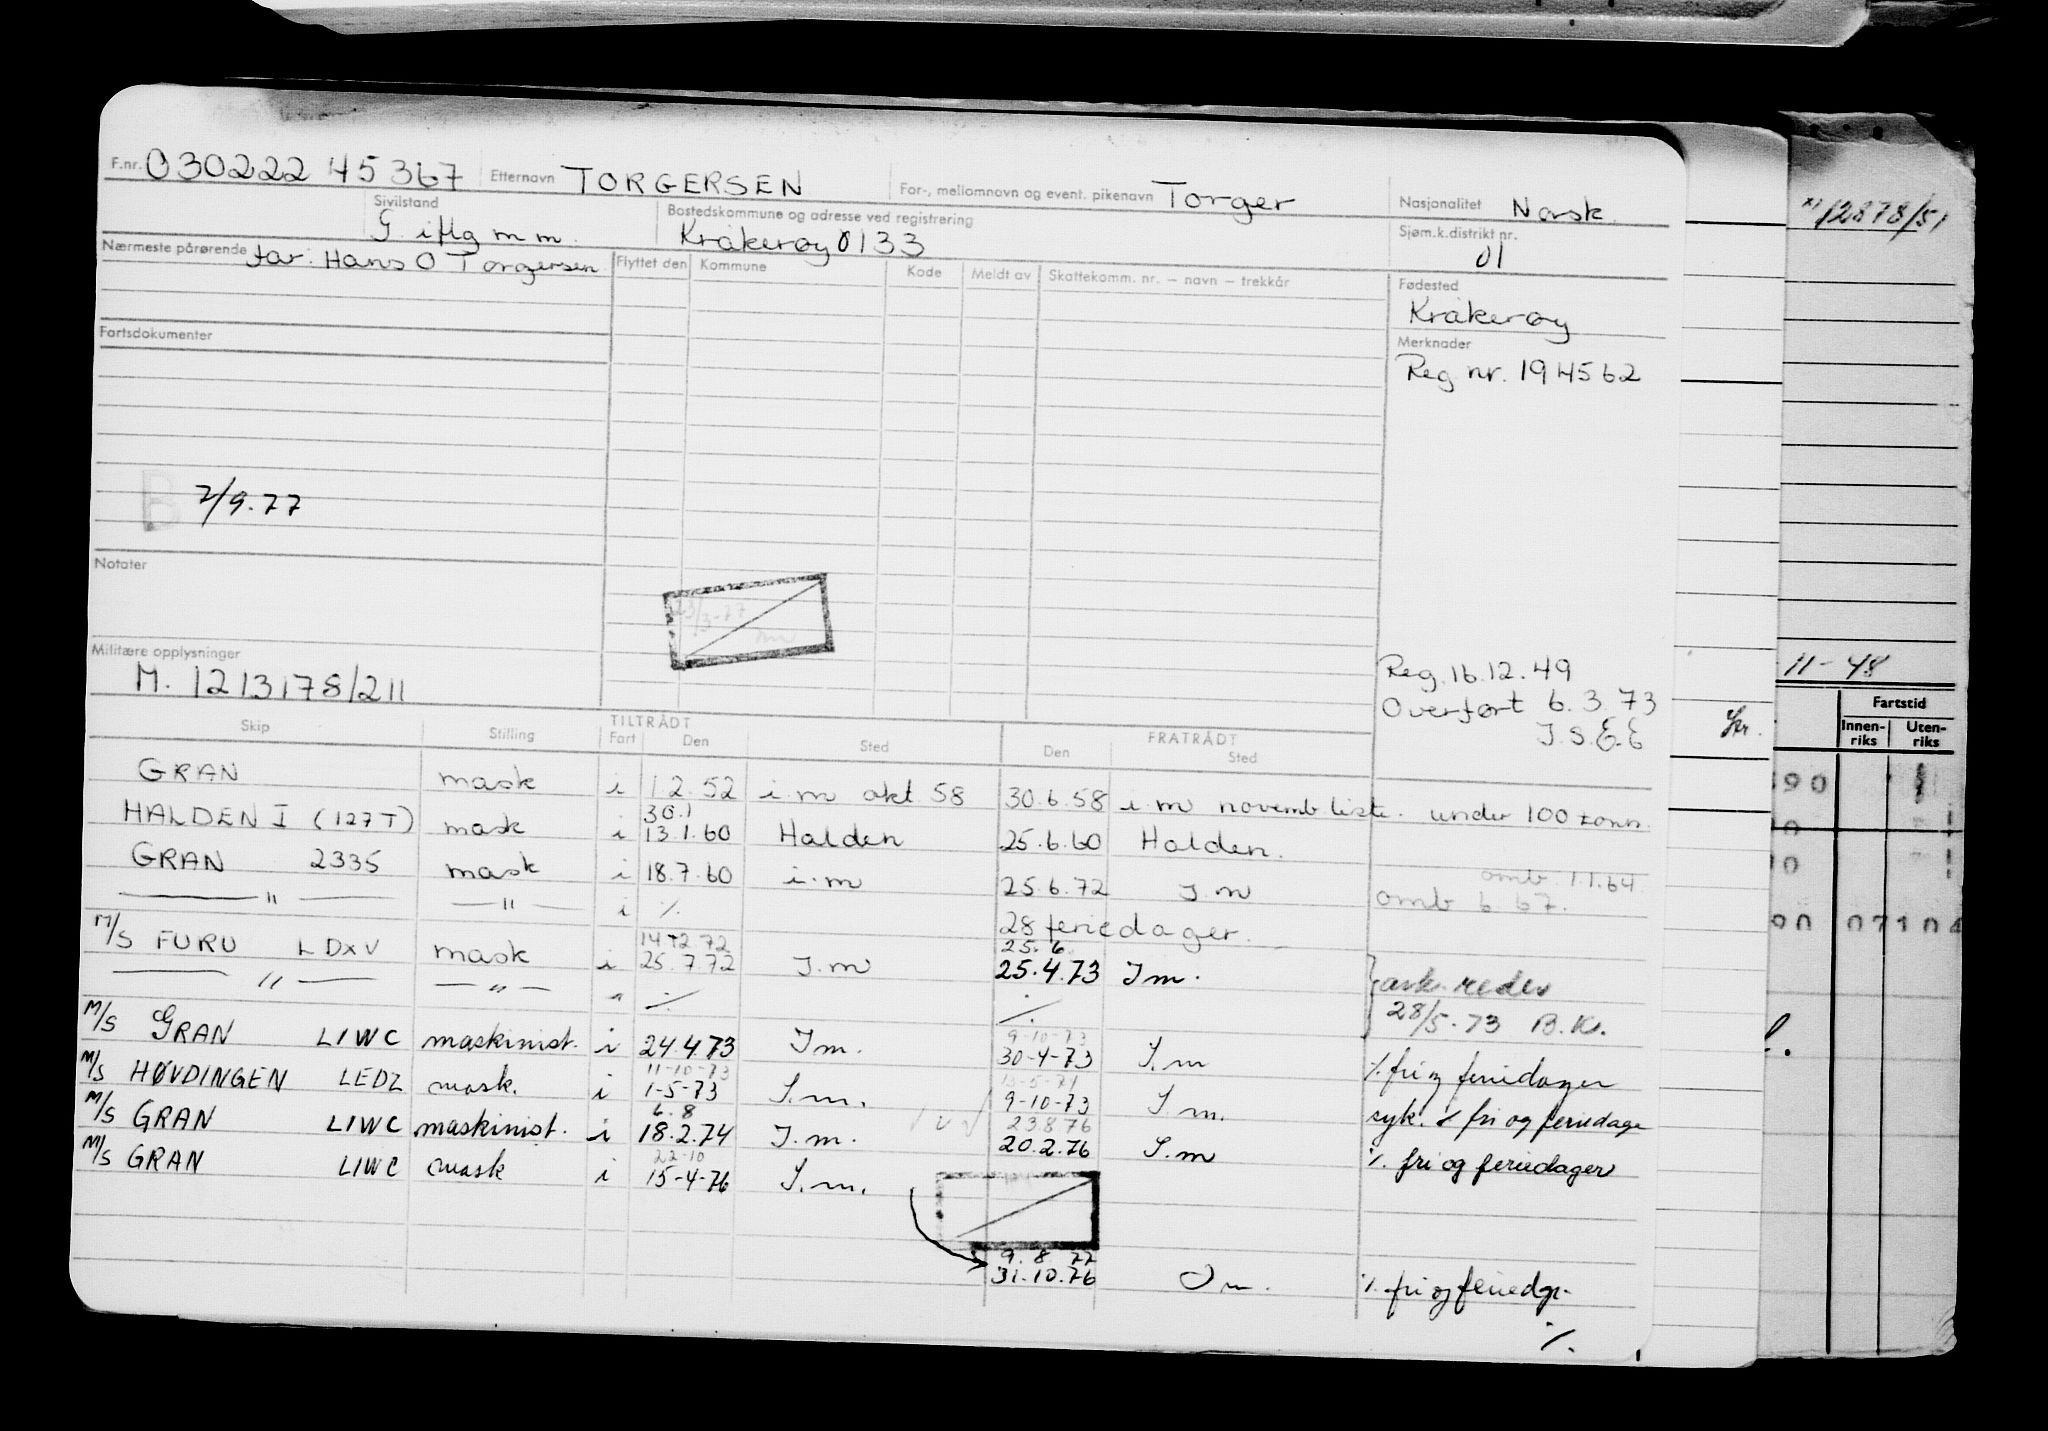 F.nr. 030222 45367 Etternavn TORGERSEN For-, mellomnavn og event. pikenavn Torger Nasjonalitet Norsk.
Sivilstand G. iflg m m. Bostedskommune og adresse ved registrering Kråkerøy 0133 Sjøm.k.distrikt nr. 01
Nærmeste pårørende far: Hans O Torgersen Flyttet den Kommune Kode Meldt av Skattekomm. nr. – navn – trekkår Fødested
Kråkerøy
Fartsdokumenter Merknader
Reg nr. 194562
B 2/9.77
Notater
23/3-77
Militære opplysninger Reg. 16.12.49
M. 1213178/211 Overført 6.3.73
J.S.E.E
Skip Stilling TILTRÅDT Fart Den Sted FRATRÅDT Den Sted
GRAN mask i 1.2.52 i.m okt 58 30.6.58 i.m novemb liste. under 100 tonn.
30.1
HALDEN I (127 T) mask i 13.1.60 Halden 25.6.60 Halden.
GRAN 2335 mask i 18.7.60 i.m 25.6.72 I.m omb. 1.1.64
— " — — " — i ./. 28 feriedager. omb 6 67.
14 12 72 25.6.
M/S FURU LDXV mask i 25.7.72 I.m 25.4.73 Im. ark. reder
— " — — " — " ./. ./. 28/5-73 B.K.
9-10-73
M/S GRAN LIWC maskinist. i 24.4.73 Im. 30-4-73 I.m ./. fri og feriedager
11-10-73
M/S HØVDINGEN LEDZ mask. i 1-5-73 I.m. 9-10-73 I.m. syk. ./. fri og feriedage
6.8 23 8 76
M/S GRAN LIWC maskinist. i 18.2.74 I.m. 20.2.76 I.m ./. fri og feriedager
22-10
M/S GRAN LIWC mask i 15-4-76 I.m.
9. 8 77
31.10.76 Om. ./. fri og feriedgr.
./.
x) 12878/51
11-48
Fartstid
Innen-riks Uten-riks
07104